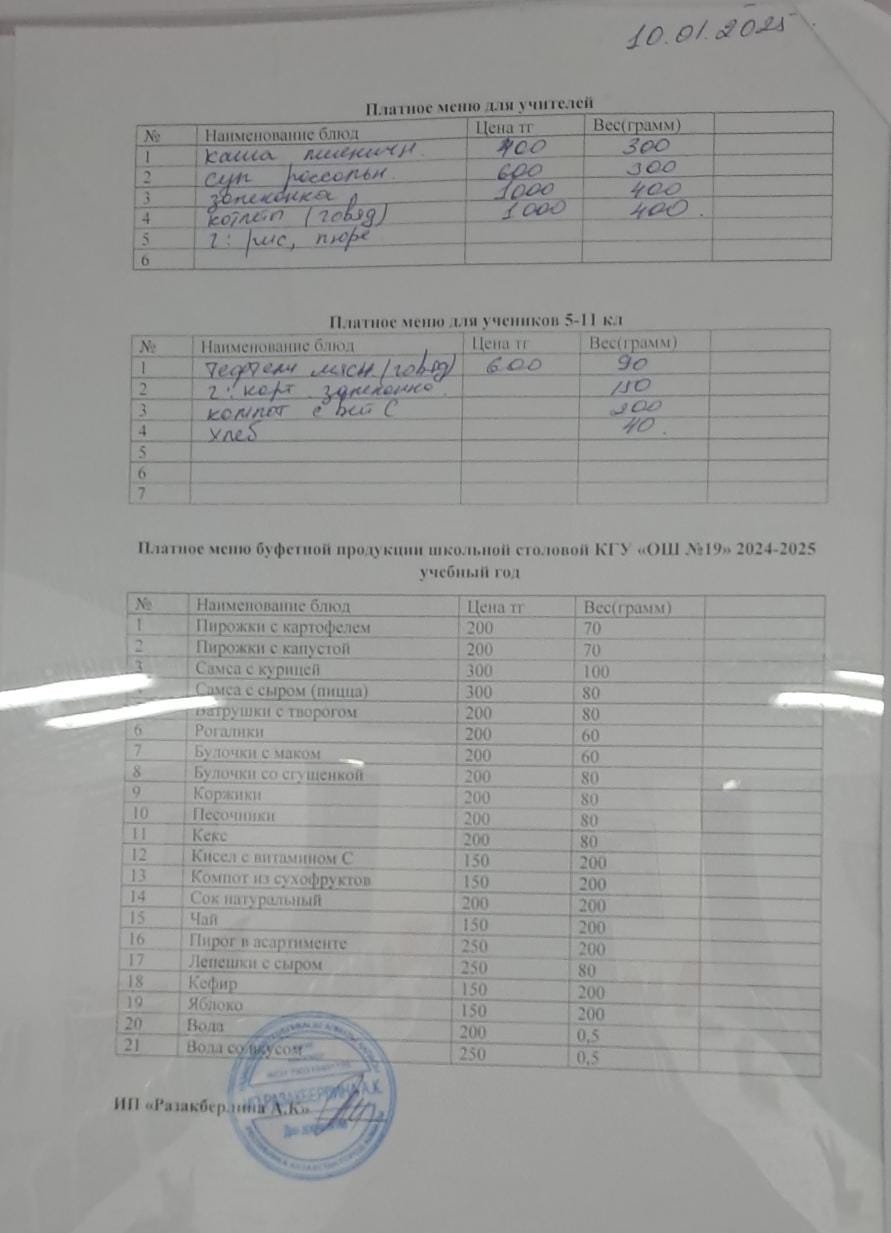 10.01.2025
Платное меню для учителей
№ Наименование блюд Цена тг Вес(грамм)
1 каша пшеничн. 400 300
2 суп рассольн. 600 300
3 запеканка 1000 400
4 котлеты (говяд) 1000 400.
5 г: рис, пюре
6
Платное меню для учеников 5-11 кл
№ Наименование блюд Цена тг Вес(грамм)
1 тефтели мясн. (говяд) 600 90
2 г: карт. запеканка. 150
3 компот с вит С 200
4 хлеб 40.
5
6
7
Платное меню буфетной продукции школьной столовой КГУ «ОШ №19» 2024-2025
учебный год
№ Наименование блюд Цена тг Вес(грамм)
1 Пирожки с картофелем 200 70
2 Пирожки с капустой 200 70
3 Самса с курицей 300 100
Самса с сыром (пицца) 300 80
Ватрушки с творогом 200 80
6 Рогалики 200 60
7 Булочки с маком 200 60
8 Булочки со сгущенкой 200 80
9 Коржики 200 80
10 Песочники 200 80
11 Кекс 200 80
12 Кисел с витамином С 150 200
13 Компот из сухофруктов 150 200
14 Сок натуральный 200 200
15 Чай 150 200
16 Пирог в асартименте 250 200
17 Лепешки с сыром 250 80
18 Кефир 150 200
19 Яблоко 150 200
20 Вода 200 0,5
21 Вода со вкусом 250 0,5
ИП «Разакберлина А.К»